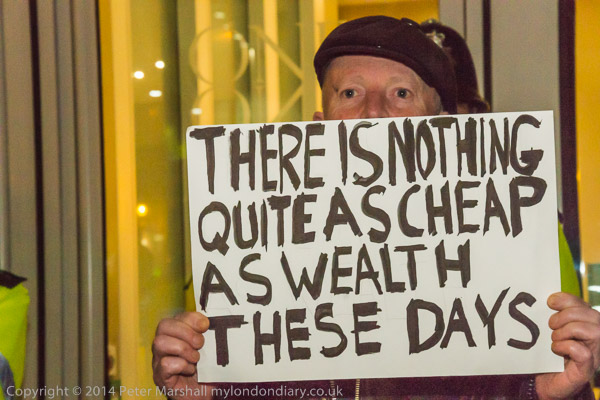 THERE IS NOTHING
QUITE AS CHEAP
AS WEALTH
THESE DAYS
Copyright © 2014 Peter Marshall mylondondiary.co.uk